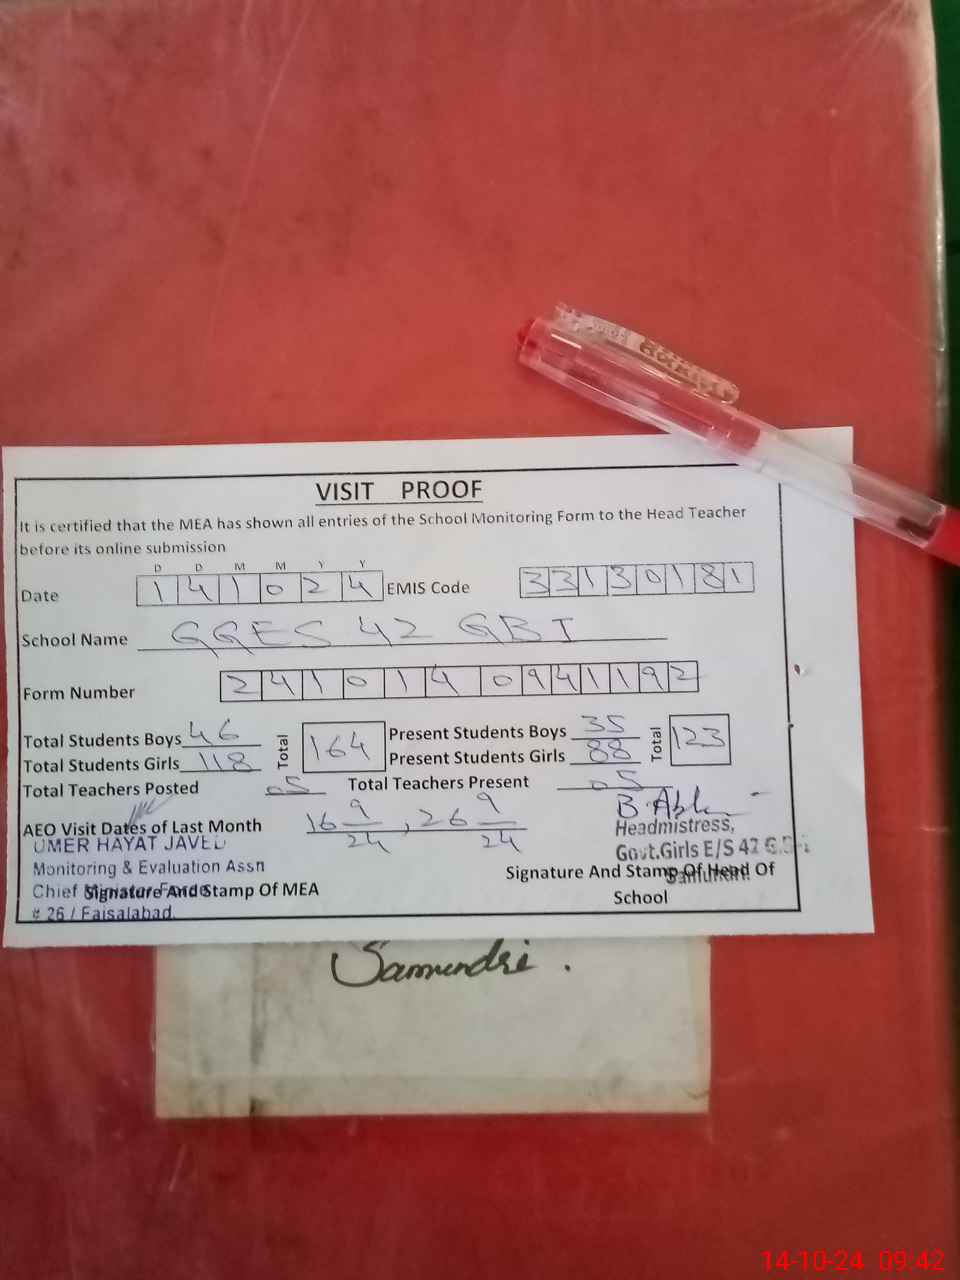 VISIT PROOF
It is certified that the MEA has shown all entries of the School Monitoring Form to the Head Teacher
before its online submission
D D M M Y Y
Date 1 4 1 0 2 4 EMIS Code 3 3 1 3 0 1 8 1
School Name GGES 42 GBI
Form Number 2 4 1 0 1 4 0 9 4 1 1 9 2
Total Students Boys 46 Total 164 Present Students Boys 35 Total 123
Total Students Girls 118 Present Students Girls 88
Total Teachers Posted 05 Total Teachers Present 05
AEO Visit Dates of Last Month 16 9/24, 26 9/24
UMER HAYAT JAVED
Monitoring & Evaluation Assn
Chief Minister
Signature And Stamp Of MEA
# 26 / Faisalabad
Headmistress,
Govt.Girls E/S 42
Signature And Stamp Of Head Of
School
Samundri.
14-10-24 09:42